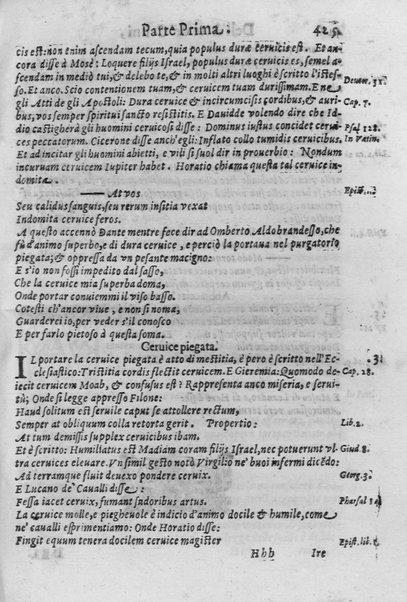 Parte Prima. 425
cis est: non enim ascendam tecum, quia populus duræ ceruicis est. Et an
cora disse à Mosè: Loquere filijs Israel, populus duræ ceruicis es, semel a-
scendam in mediò tui, & delebo te, & in molti altri luoghi è scritto l'istes-
so. Et anco. Scio contentionem tuam, & ceruicem tuam durissimam. E ne
gli Atti de gli Apostoli: Dura ceruice & incircumcisis cordibus, & auri-
bus, vos semper spiritui sancto resistitis. E Dauidde volendo dire che Id-
dio castigherà gli huomini ceruicosi disse: Dominus iustus concidet cerui-
ces peccatorum. Cicerone disse anch'egli: Inflato collo tumidis ceruicibus.
Et ad incitar gli huomini abietti, e vili si suol dir in prouerbio: Nondum
incuruam ceruicem Iupiter habet. Horatio chiama questa tal ceruice in-
domita.
Deuter. 31.
Cap. 7.
Psal 128.
In Vatin.
Epist. .3
At vos
Seu calidus sanguis, seu rerum insitia vexat
Indomita ceruice feros.
A questo accennò Dante mentre fece dir ad Omberto Aldobrandesso, che
fù d'animo superbo, e di dura ceruice, e perciò la portaua nel purgatorio
piegata; & oppressa da vn pesante macigno:
E s'io non fossi impedito dal sasso,
Che la ceruice mia superba doma,
Onde portar conuiemmi il viso basso.
Cotesti ch'ancor viue, e non si noma,
Guarderei io, per veder s'il conosco
E per farlo pietoso à questa soma.
Ceruice piegata.
IL portare la ceruice piegata è atto di mestitia, è però è scritto nell'Ec-
clesiastico: Tristitia cordis flectit ceruicem. E Gieremia: Quomodo de-
iecit ceruicem Moab, & confusus est? Rapresenta anco miseria, e serui-
tù; Onde si legge appresso Filone:
3.
Cap. 28.
Haud solitum est seruile caput se attollere rectum,
Semper at obliquum colla retorta gerit. Propertio:
Lib. 2.
At tum demissis supplex ceruicibus ibam.
Et è scritto: Humiliatus est Madiam coram filijs Israel, nec potuerunt vl-
tra ceruices eleuare. Vn simil gesto notò Virgilio ne' buoi infermi dicẽdo:
Giud. 8.
Ad terramque fluit deuexo pondere ceruix.
Georg. 3.
E Lucano de' Caualli disse:
Fessa iacet ceruix, fumant sudoribus artus.
Pharsal
La ceruice molle, e piegheuole è indicio d'animo docile & humile, come
ne' caualli esprimentiamo: Onde Horatio disse:
Fingit equum tenera docilem ceruice magister
Epist. lib.
Hhh Ire